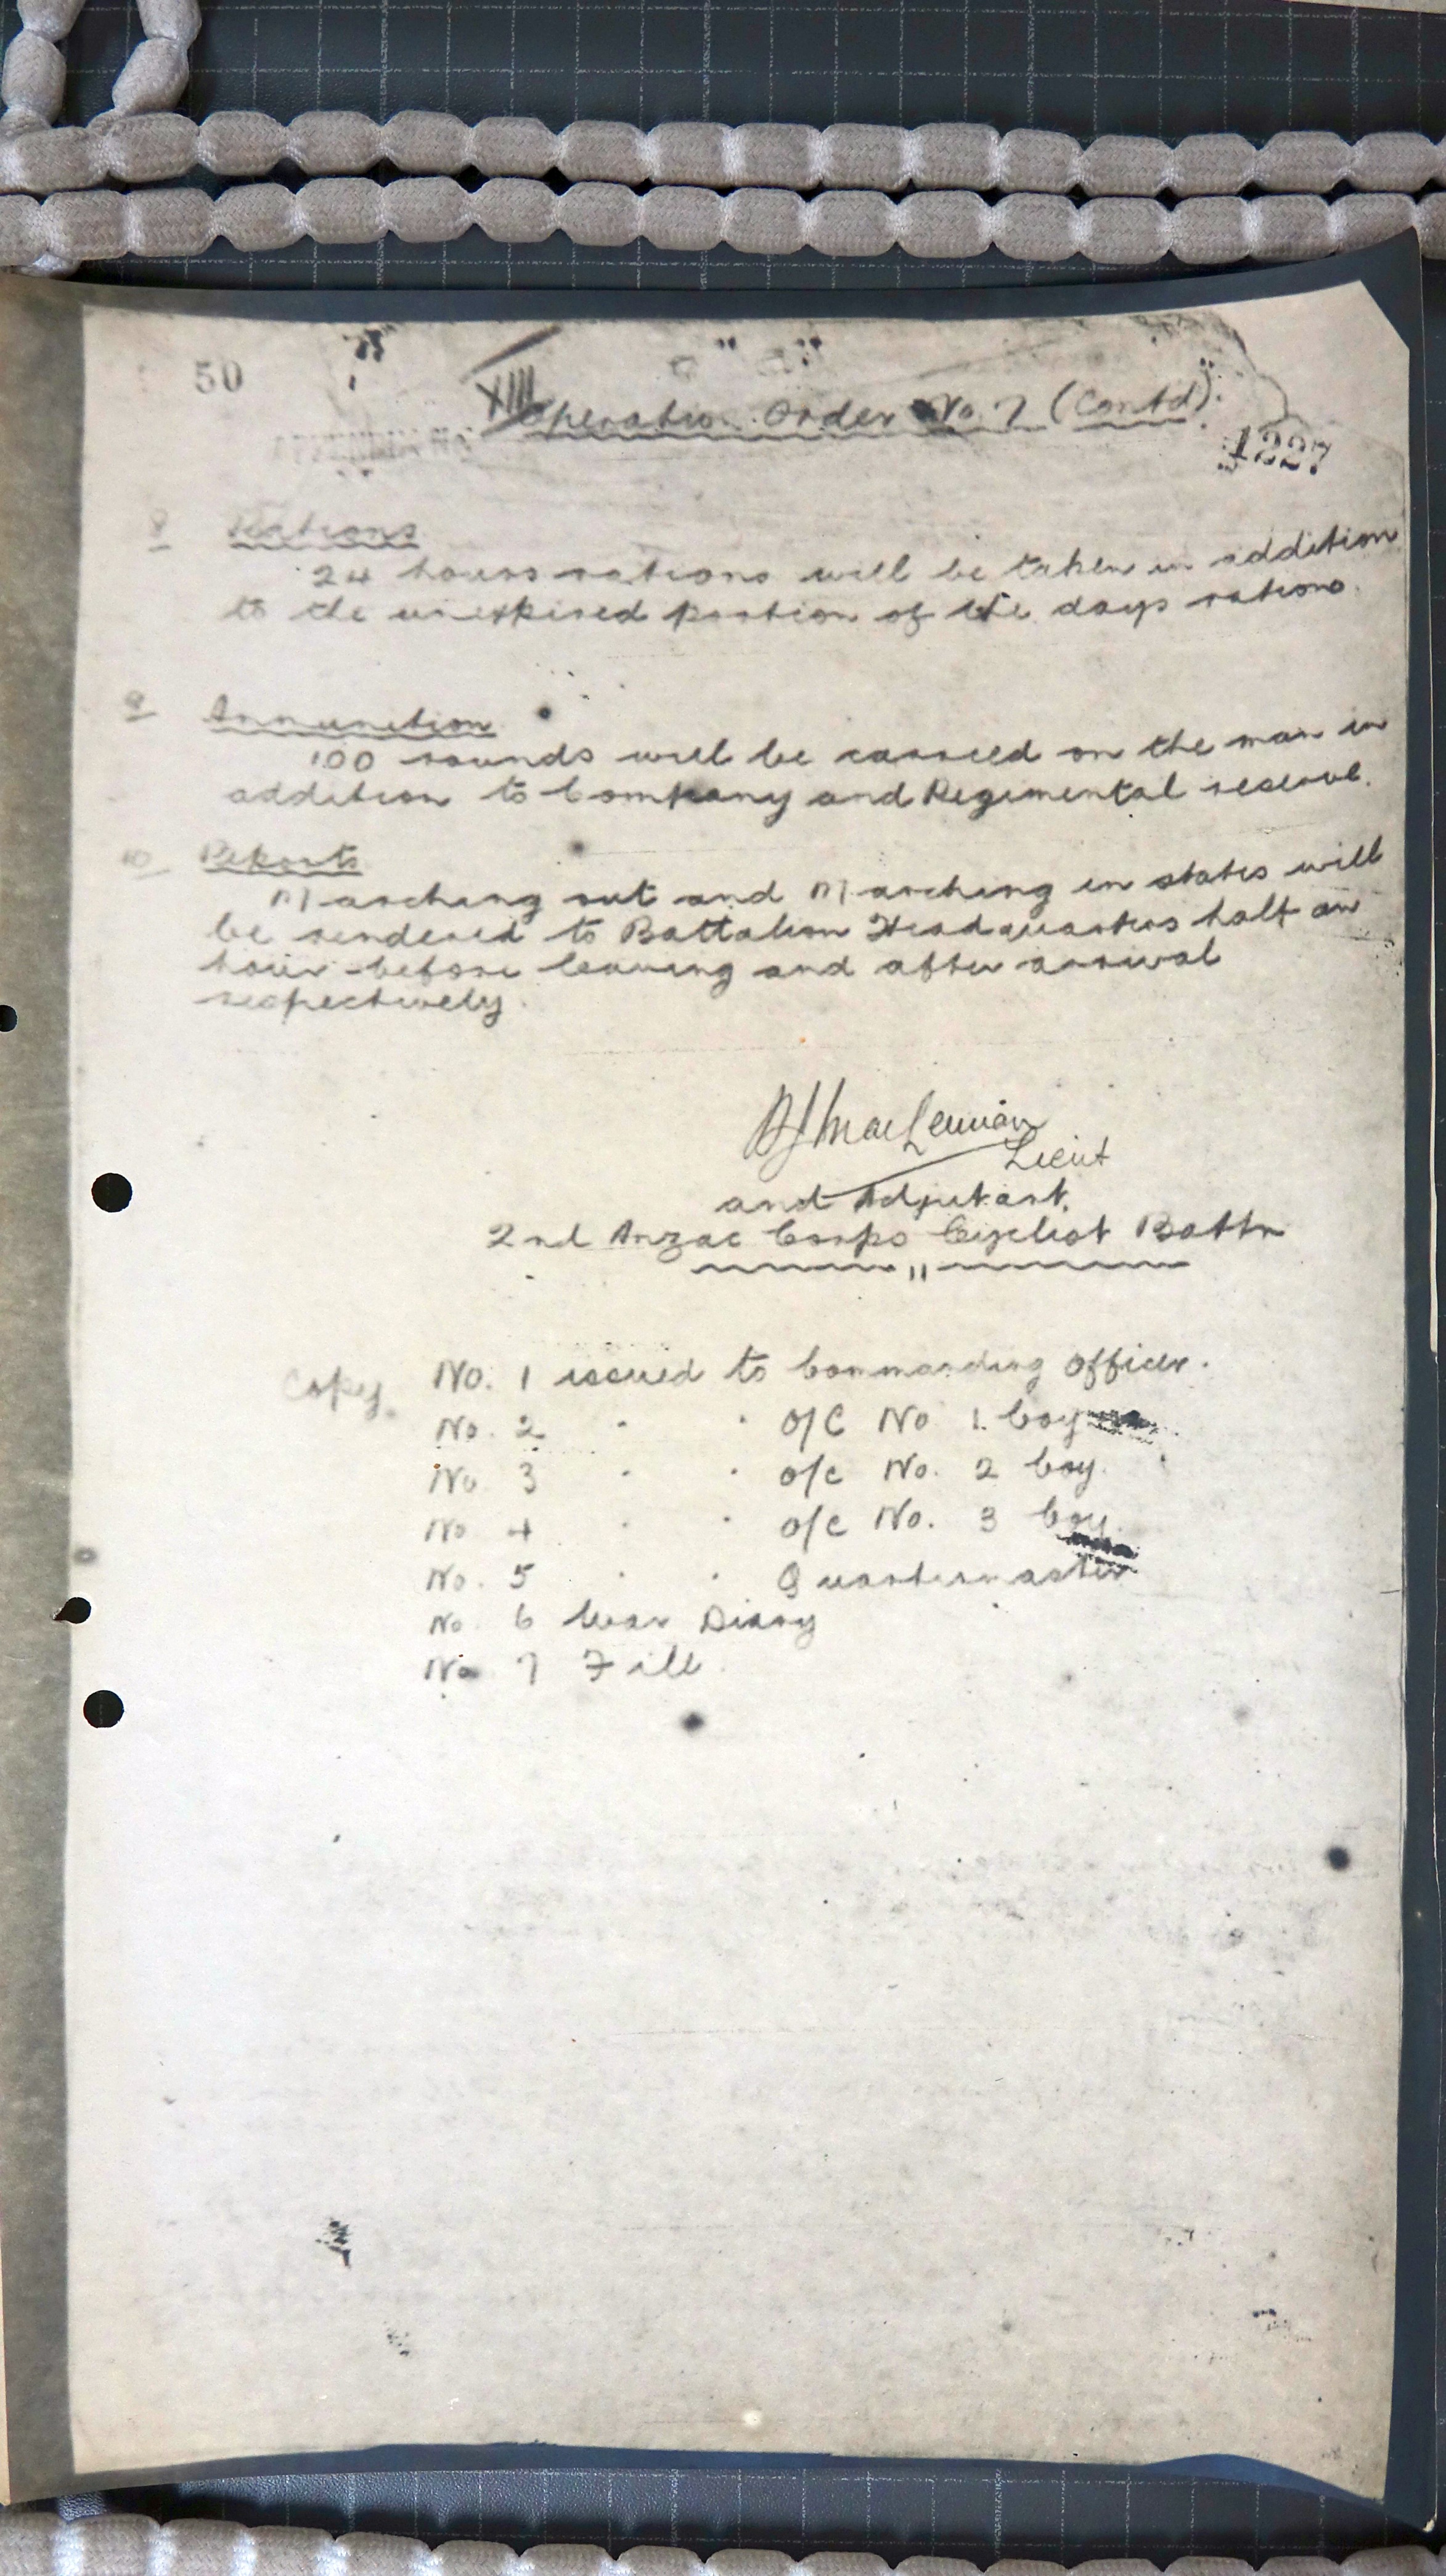 50
XIII Operation Order No. 7 (Contd).
1227
8 Rations
24 hours rations will be taken in addition
to the unexpired portion of the days rations.
9 Ammunition
100 rounds will be carried on the man in
addition to Company and Regimental reserve.
10 Reports
Marching out and Marching in states will
be rendered to Battalion Headquarters half an
hour before leaving and after arrival
respectively.
MacLennan
Lieut
and Adjutant.
2nd Anzac Corps Cyclist Battn
"
Copy No. 1 issued to Commanding Officer.
No. 2 " " O/C No 1. Coy
No 3 " " o/c No. 2 Coy.
No 4 " " o/c No. 3 Coy.
No. 5 " " Quartermaster
No. 6 War Diary
No 7 File